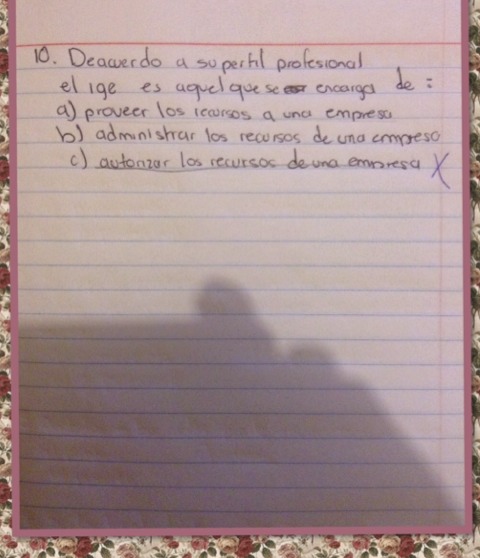 10. Deacuerdo a su perfil profesional
el ige es aquel que se encarga de :
a) proveer los recursos a una empresa
b) administrar los recursos de una empresa
c) autorizar los recursos de una empresa X